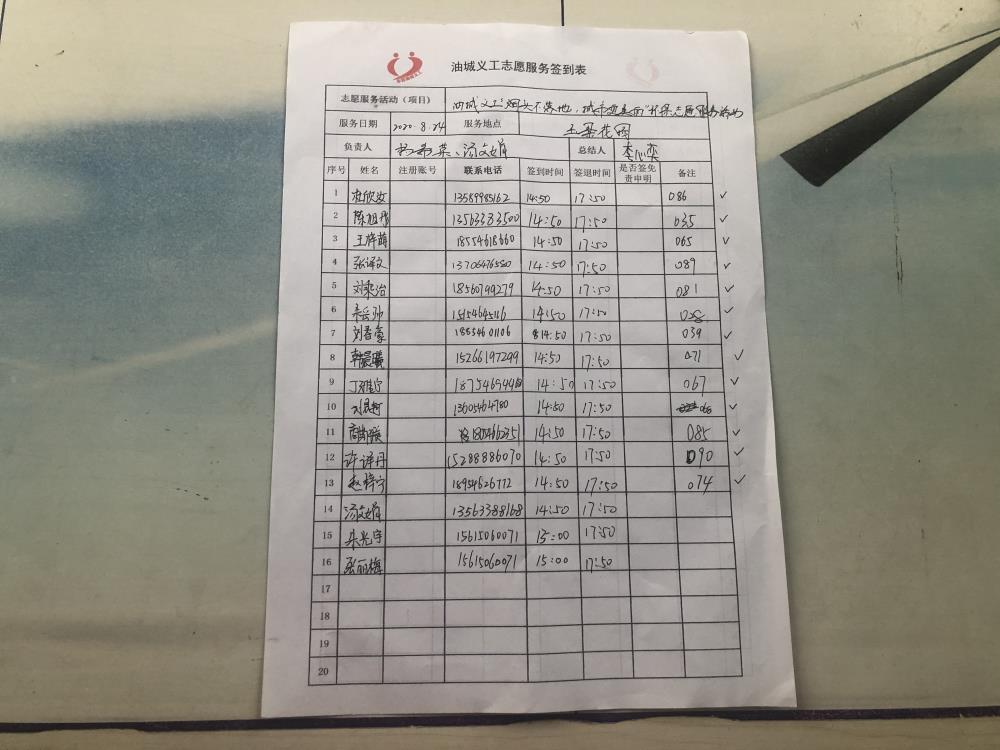 油城义工志愿服务签到表
志愿服务活动（项目） 油城义工"烟头不落地，城市更美丽"环保志愿服务活动
服务日期 2020.8.24 服务地点
负责人 总结人 李心奕
序号 姓名 注册账号 联系电话 签到时间 签退时间 是否签免责申明 备注
1 13589985162 14:50 17:50 086 ✓
2 13563383500 14:50 17:50 035 ✓
3 王梓萌 18554618660 14:50 17:50 065 ✓
4 张译文 13706476550 14:50 17:50 089 ✓
5 18560799279 14:50 17:50 081 ✓
6 14:50 17:50 ✓
7 18854601106 14:50 17:50 039 ✓
8 韩晨曦 15266197299 14:50 17:50 071 ✓
9 14:50 17:50 067 ✓
10 13605464780 14:50 17:50 ✓
11 14:50 17:50 085 ✓
12 许译丹 15288886070 14:50 17:50 090 ✓
13 赵梓宁 18954626772 14:50 17:50 074 ✓
14 汤文娟 13563388168 14:50 17:50
15 朱光宇 15615060071 15:00 17:50
16 张丽梅 15615060071 15:00 17:50
17
18
19
20